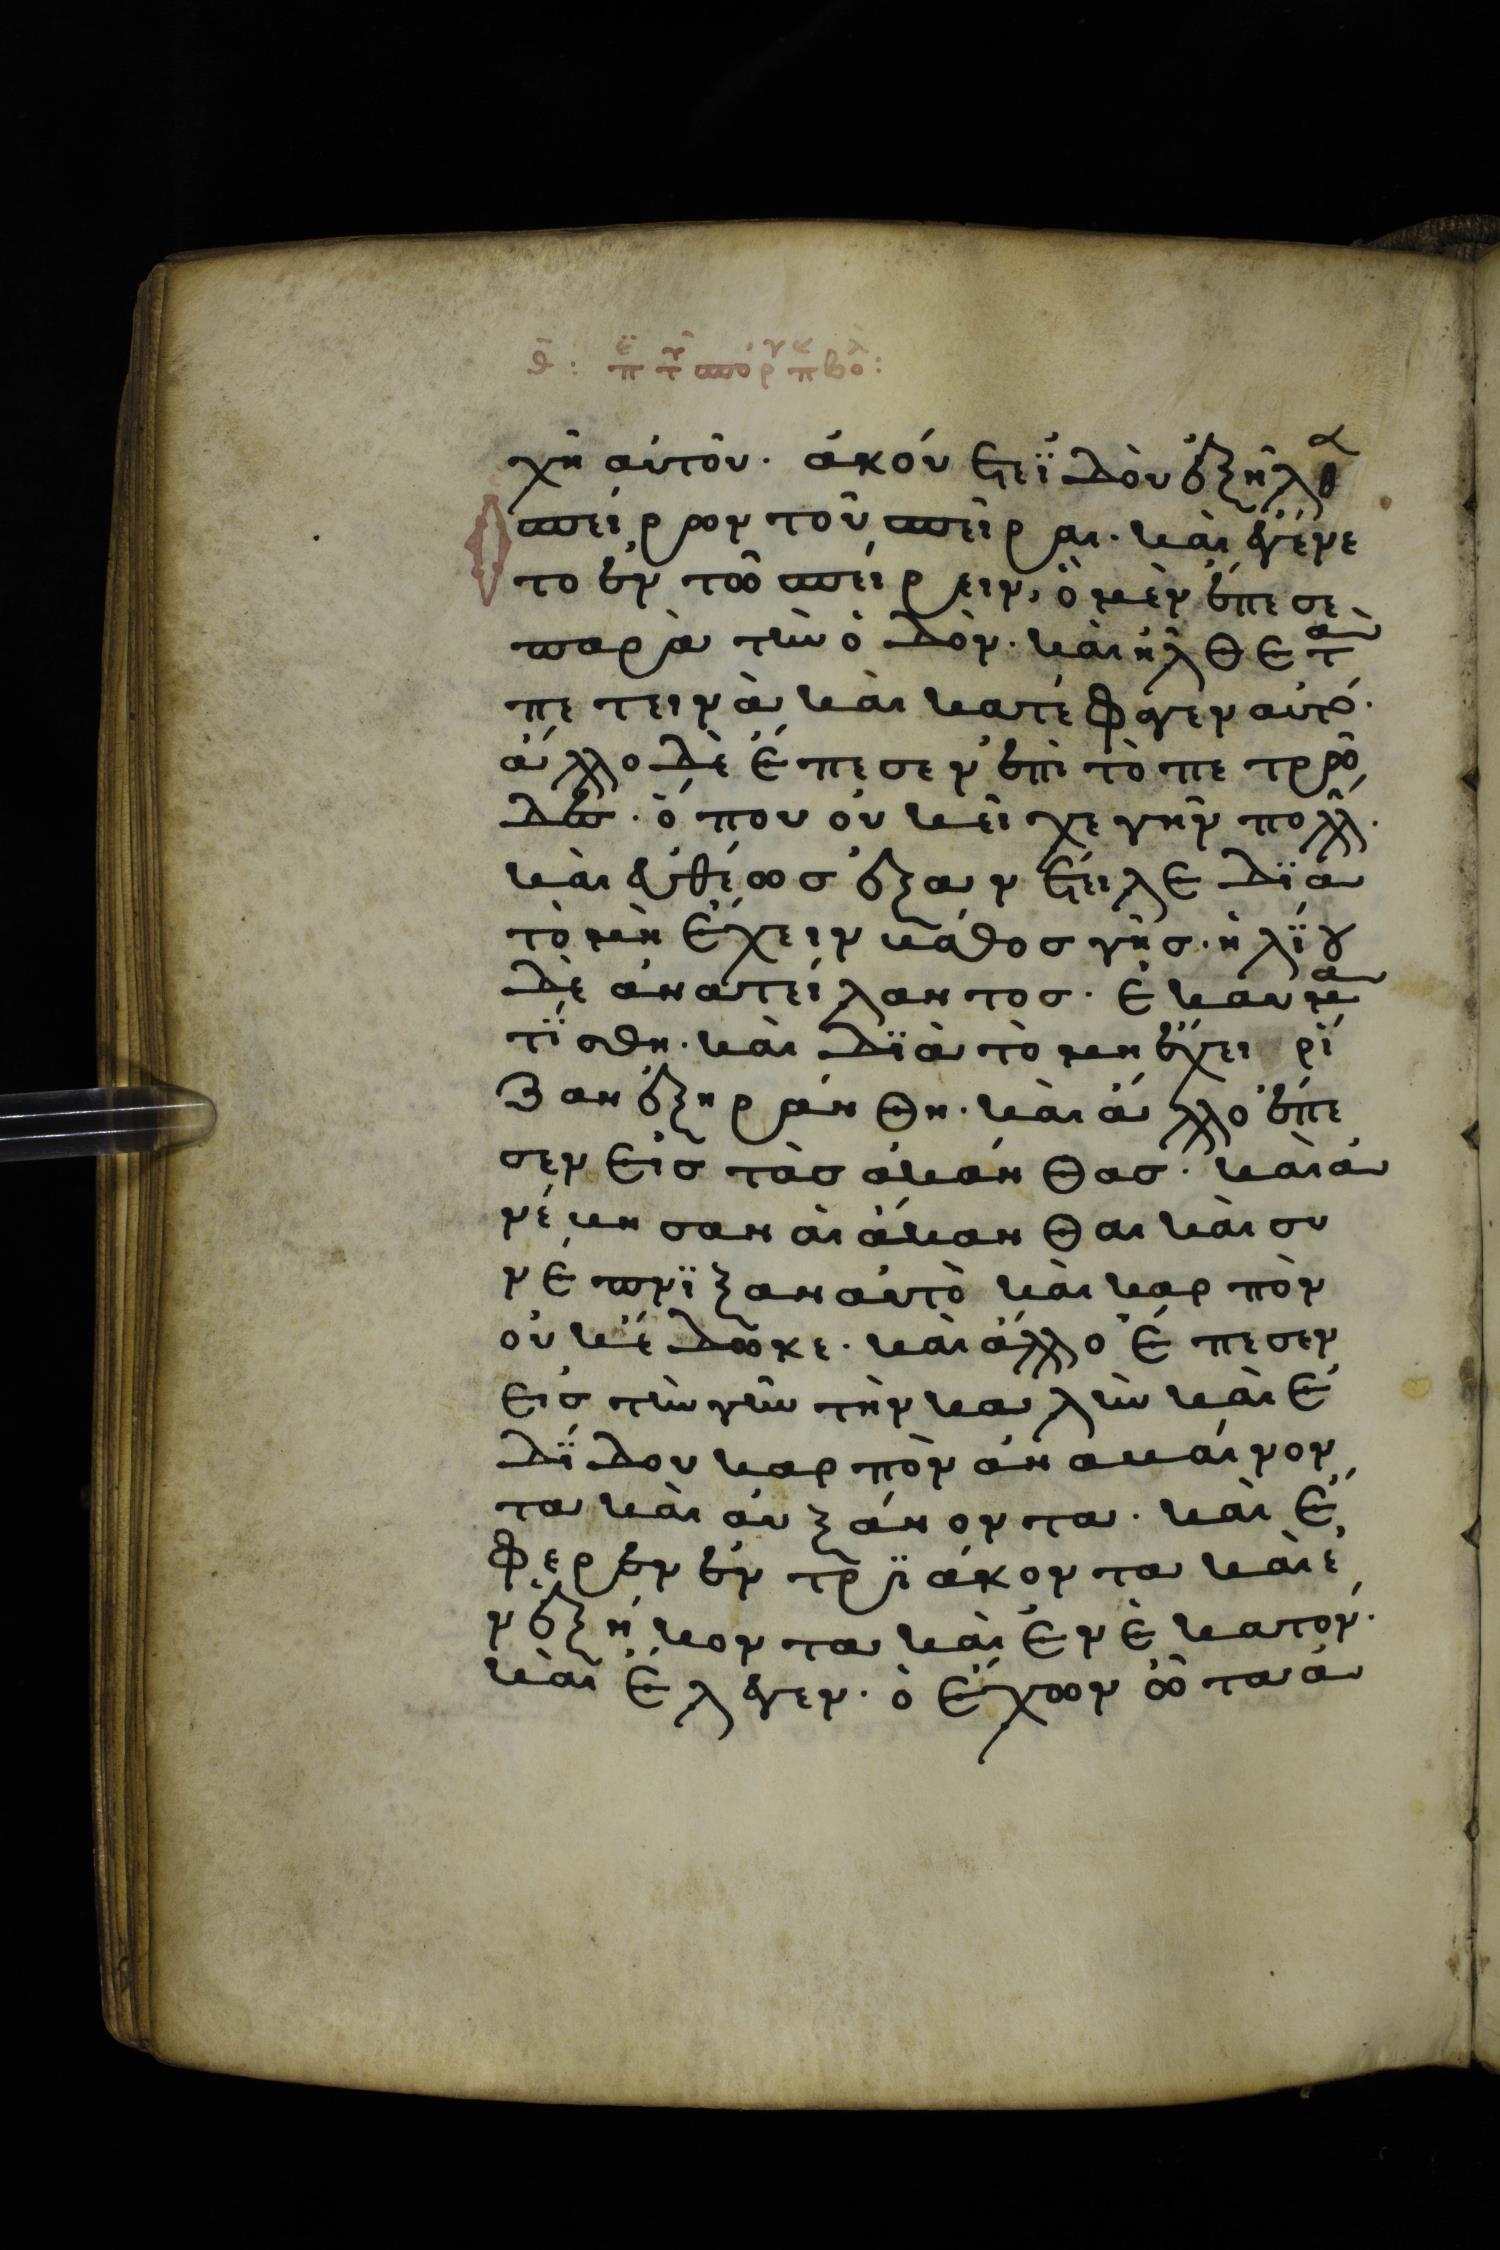 θ̄: π̈ε τ̑ σπόρ παραβολ:
χῆ αὐτοῦ. ἀκούεϊ ἰδοὺ ἐξῆλθ
ὁ σπείρων τοῦ σπεῖραι. καὶ ἐγένε
το ἐν τῶ σπείρειν, ὃ μὲν ἔπεσε
παρὰ τὴν ὁδὸν. καὶ ἦλθε τὰ
πετεινὰ καὶ κατέφαγεν αὐτό.
ἄλλο δὲ ἔπεσεν ἐπὶ τὸ πετρῶ
δες. ὅπου οὐκ εἶχε γῆν πολλ.
καὶ εὐθέωσ ἐξανέτειλε δϊὰ
τὸ μὴ ἔχειν βάθοσ γῆσ. ἡλΐου
δὲ ἀνατείλαντοσ. ἐκαυμα
τΐσθη. καὶ δϊὰ τὸ μὴ ἔχει ρί
ζαν ἐξηράνθη. καὶ ἄλλο ἔπε
σεν εἰσ τὰσ ἀκάνθασ. καὶ ἀ
νέβησαν αἱ ἄκανθαι καὶ συ
νέπνϊξαν αὐτὸ καὶ καρπὸν
οὐκ ἔδωκε. καὶ ἄλλο ἔπεσεν
εἰσ τὴν γῆν τὴν καλὴν καὶ ἐ
δΐδου καρπὸν ἀναβαίνον
τα καὶ αὐξάνοντα. καὶ ἔ
φερεν ἐν τρϊάκοντα καὶ ἐ
ν ἐξήκοντα καὶ ἐν ἑκατον.
καὶ ἔλεγεν. ὁ ἔχων ὦτα ἀ